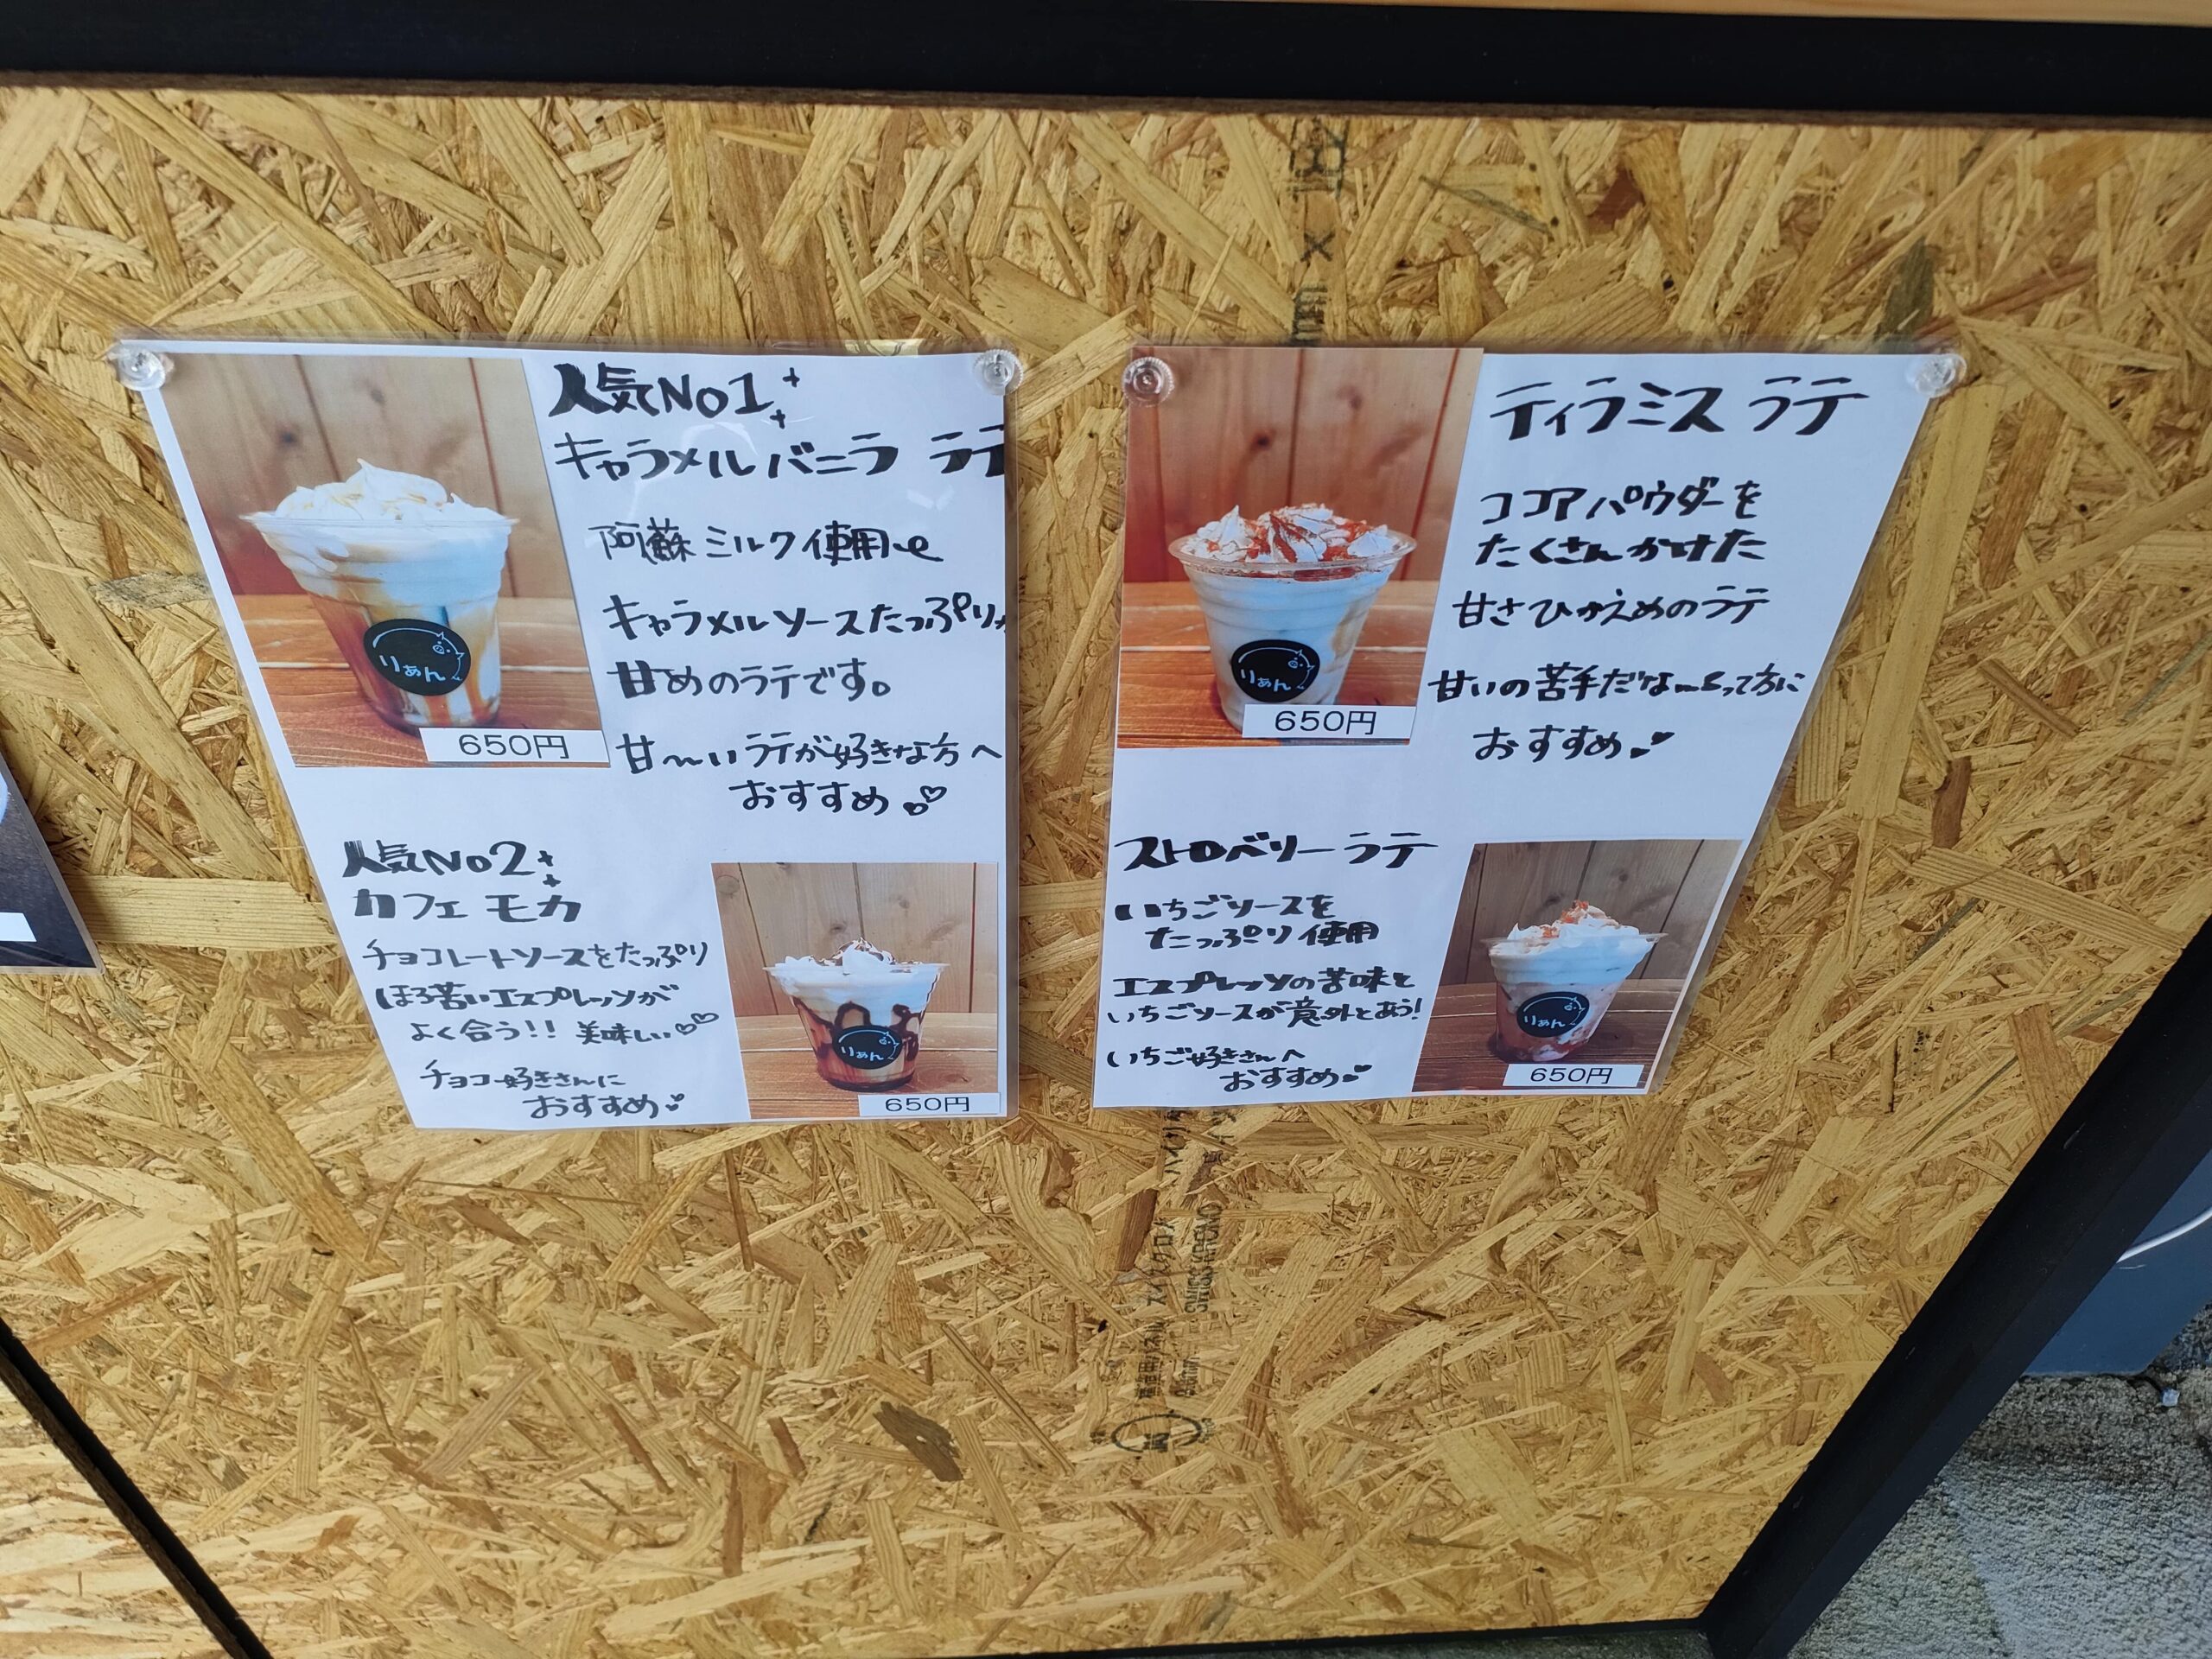 人気No1
キャラメルバニラ ラテ
阿蘇ミルク使用
キャラメルソースたっぷり
甘めのラテです。
甘〜いラテが好きな方へ
おすすめ
りあん
650円
人気No2
カフェ モカ
チョコレートソースをたっぷり
ほろ苦いエスプレッソが
よく合う!! 美味しい
チョコ好きさんに
おすすめ
りあん
650円
ティラミス ラテ
ココアパウダーを
たくさんかけた
甘さひかえめのラテ
甘いの苦手だな〜って方に
おすすめ
りあん
650円
ストロベリーラテ
いちごソースを
たっぷり使用
エスプレッソの苦味と
いちごソースが意外とあう!
いちご好きさんへ
おすすめ
りあん
650円
SWISS KRONO